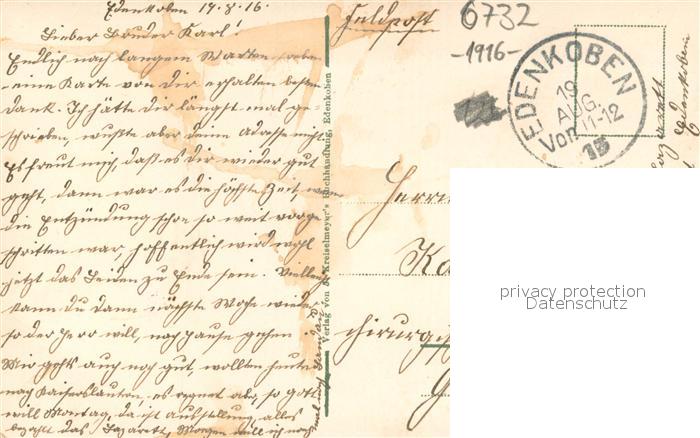 Edenkoben 19.8.16.
Lieber Bruder Karl!
Endlich nach langem Warten soeben
eine Karte von dir erhalten besten
Dank. Ich hätte dir längst mal ge-
schrieben, wußte aber deine Adresse nicht.
Es freut mich, daß es dir wieder gut
geht, dann war es die höchste Zeit, wenn
die Entzündung schon so weit vorge
schritten war, hoffentlich wird wohl
jetzt das Leiden zu Ende sein. Vielleicht
kann du dann nächste Woche wieder
so der Herr will, nach hause gehen.
Mir gehts auch noch gut, wollten heute
nach Kaiserslautern es regnet aber, so Gott
will Montag, da ist Ausstellung, alles
bezahlt das Lazarett, Morgen will ich noch
mal nach Landau
Verlag von J. Kreiselmeyer's Buchhandlung, Edenkoben
Feldpost
6732
-1916-
EDENKOBEN
19
AUG.
Vor. 11-12
Herrn
Ka
chirurg
Edenkoben
privacy protection
Datenschutz